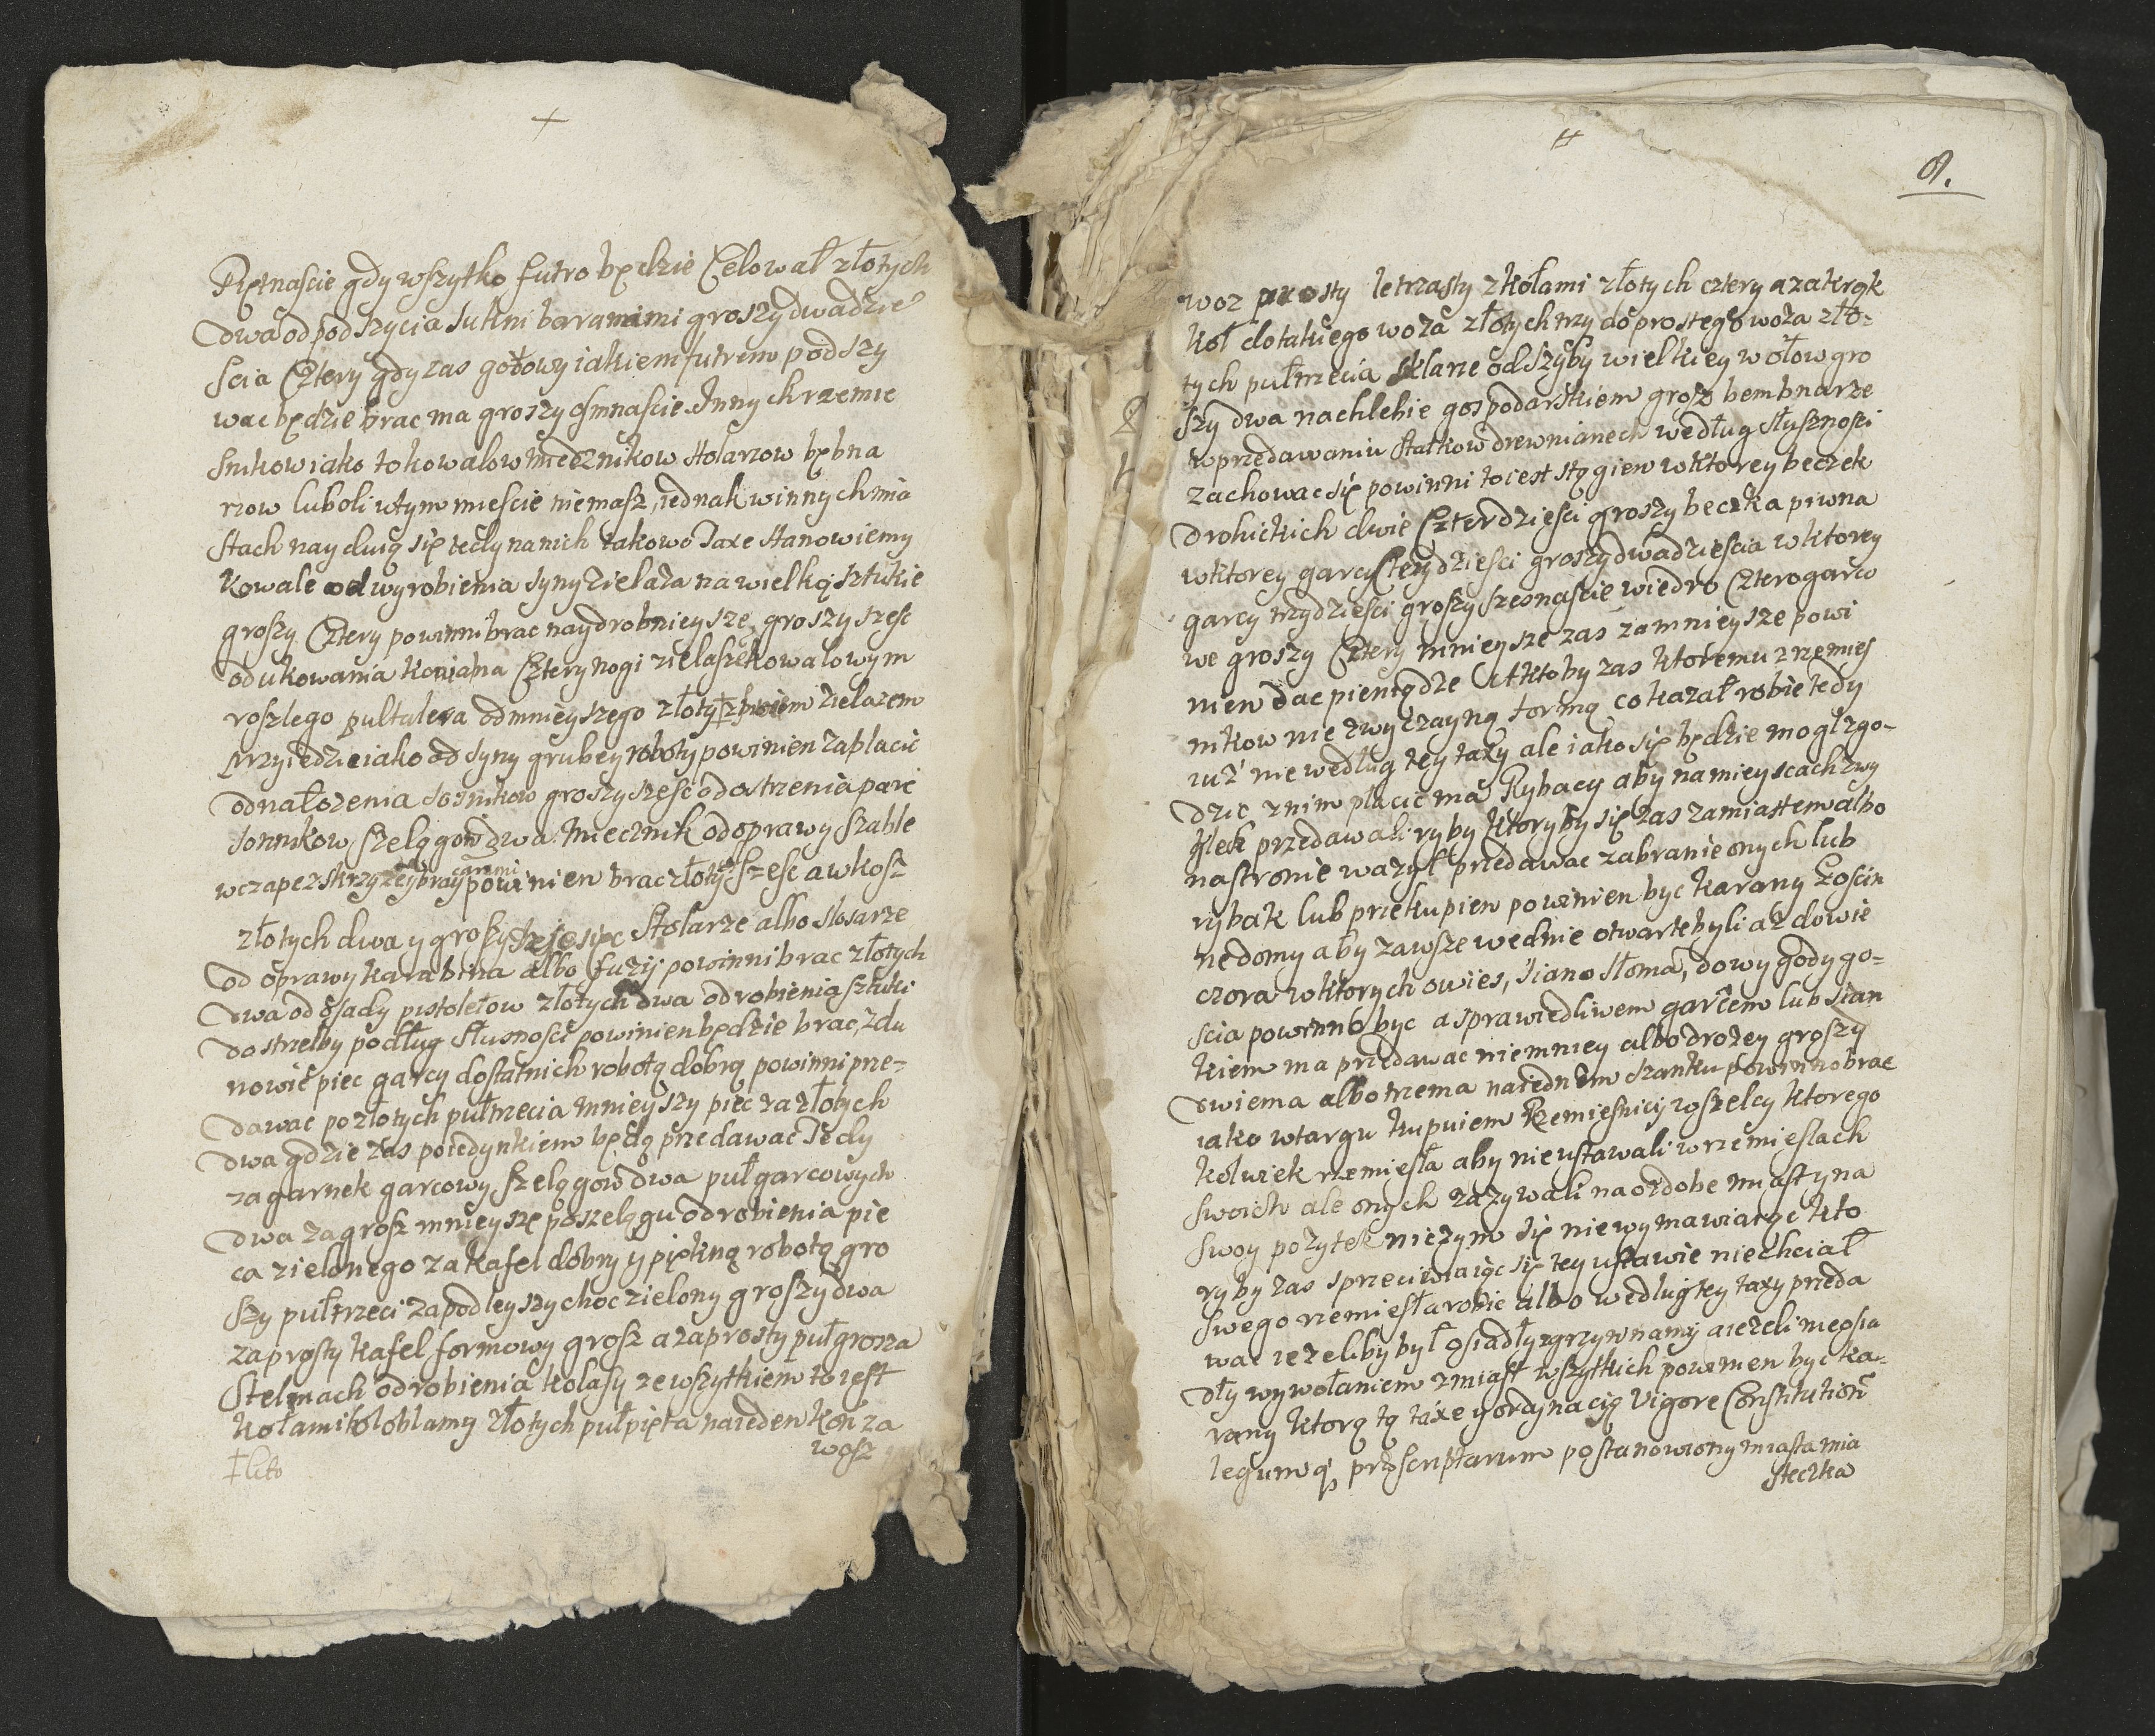 Piętnascie gdy wszytko futro będzie Celował złotych
dwa od podszycia sukni baranami groszy dwadzie
scia Cztery gdy zas gotowy iakiem futrem podszy
wac będzie brac ma groszy osmnascie. Innych rzemie
snikow iako to kowalow miecznikow stolarzow bębna
rzow luboli w tym miescie niemasz, iednak w innych mia
stach nayduią się tedy na nich takowo Taxe stanowiemy
Kowale od wyrobienia syny zielaza na wielką sztukie
groszy Cztery powinni brac naydrobnieyszę groszy szesc
od ukowania konia na Cztery nogi zielaszę kowalowym
roszlego pultalera od mnieyszego złoty ‡ zielazem
przyiedzie iako od syny grubey roboty powinien zaplacic
od nałozenia sosnikow groszy szesc od ostrzenia pare
sonnikow szelągow dwa. Miecznik od oprawy szable
w czapez skrzyzey powinien brac złoty szesc a w kosz
caremi
złotych dwa y groszy dziesięc Stolarze albo slosarze
od oprawy karabina albo fuzij powinni brac złotych
dwa od osady pistoletow złotych dwa od robienia sztuki
do strzelby podług słusnosci powinien będzie brac, zdu
nowie piec garcy dostatnich robotą dobrą powinni prze-
dawac po złotych pułtrzecia mnieyszy piec za złotych
dwa gdzie zas poiedynkiem będą przedawac Tedy
za garnek garcowy szelągow dwa puł garcowych
dwa za grosz mnieyszę po szelągu od robienia pie
ca zielonego za kafel dobry y piękną robotą gro
szy pułtrzeci za podleyszy choc zielony groszy dwa
za prosty kafel formowy grosz a za prosty puł grosza
Stelmach od robienia kolasy ze wszytkiem to iest
kołami hołoblamy złotych puł pięta na ieden kon za
wosz
‡ lito
8.
woz prosty letrzasty z kołami złotych cztery a za krąk
koł do takiego woza złotych trzy do prostego woza zło-
tych pułtrzecia Sklarze od szyby wielkiey w ołow gro
szy dwa na chlebie gospodarskiem grosz bembnarze
w przedawaniu statkow drewnianech według słusznosci
zachowac się powinni to iest stągiew w ktorey beczek
drohickich dwie Czterdziesci groszy beczka piwna
w ktorey garcy Czterydziesci groszy dwadziescia w ktorey
garcy trzydziesci groszy szesnascie wiedro Czterogarco
we groszy Cztery mnieysze zas za mnieysze powi
nien dac pieniądze A ktoby zas ktoremu z rzemies
nikow nie zwyczayną formą co kazał robic tedy
iuz nie wedlug tey taxy ale iako się będzie mogl zgo-
dzic z nim płacic ma Rybacy aby na mieyscach zwy
kłek przedawali ryby ktoryby się zas za miastem albo
na stronie wazył przedawac zabranie onych lub
rybak lub przekupien powinien byc karany Goscin
ne domy aby zawsze we dnie otwarte byli az do wie
czora w ktorych owies, siano słoma, do wygody go-
scia powinno byc a sprawiedliwem garcem lub szan
kiem ma przedawac niemniey albo drozey groszy
dwiema albo trzema na iednem szanku powinno brac
iako w targu kupuiem Rzemiesnicy wszelcy ktorego
kolwiek rzemiesła aby nie ustawali w rzemieslach
swoich ale onych zazywali na ozdobe miasty na
swoy pozytek niczym się nie wymawiaiąc kto
ryby zas sprzeciwiaiąc się tey ustawie niechciał
swego rzemiesła robic albo według tey taxy przeda
wac iezeliby był osiadły zgrzywnamy a iezeli nieosia
dły wywołaniem z miast wszytkich powinien byc ka-
rany ktorą tą taxe y ordynacią Vigore Constitution
legumq praescriptarum postanowiony miasta mia
steczka